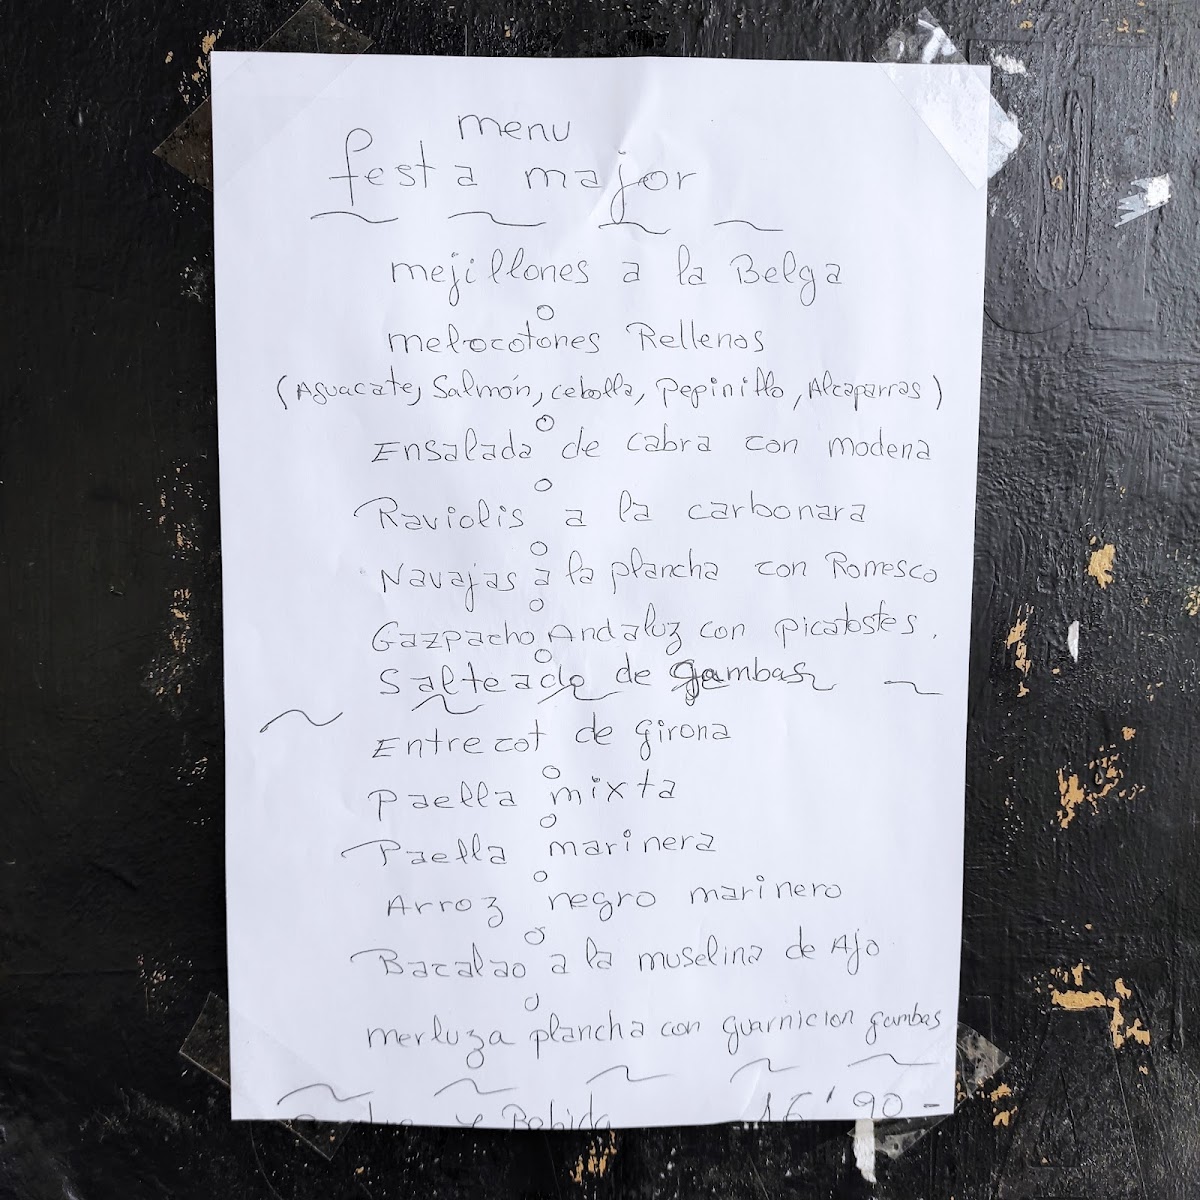 menu
festa major
mejillones a la Belga
melocotones Rellenos
(Aguacate, Salmón, cebolla, Pepinillo, Alcaparras)
Ensalada de cabra con modena
Raviolis a la carbonara
Navajas a la plancha con Romesco
Gazpacho Andaluz con picatostes.
Salteado de gambas
Entrecot de girona
Paella mixta
Paella marinera
Arroz negro marinero
Bacalao a la muselina de Ajo
merluza plancha con guarnicion gambas
y Bebida 16'90-